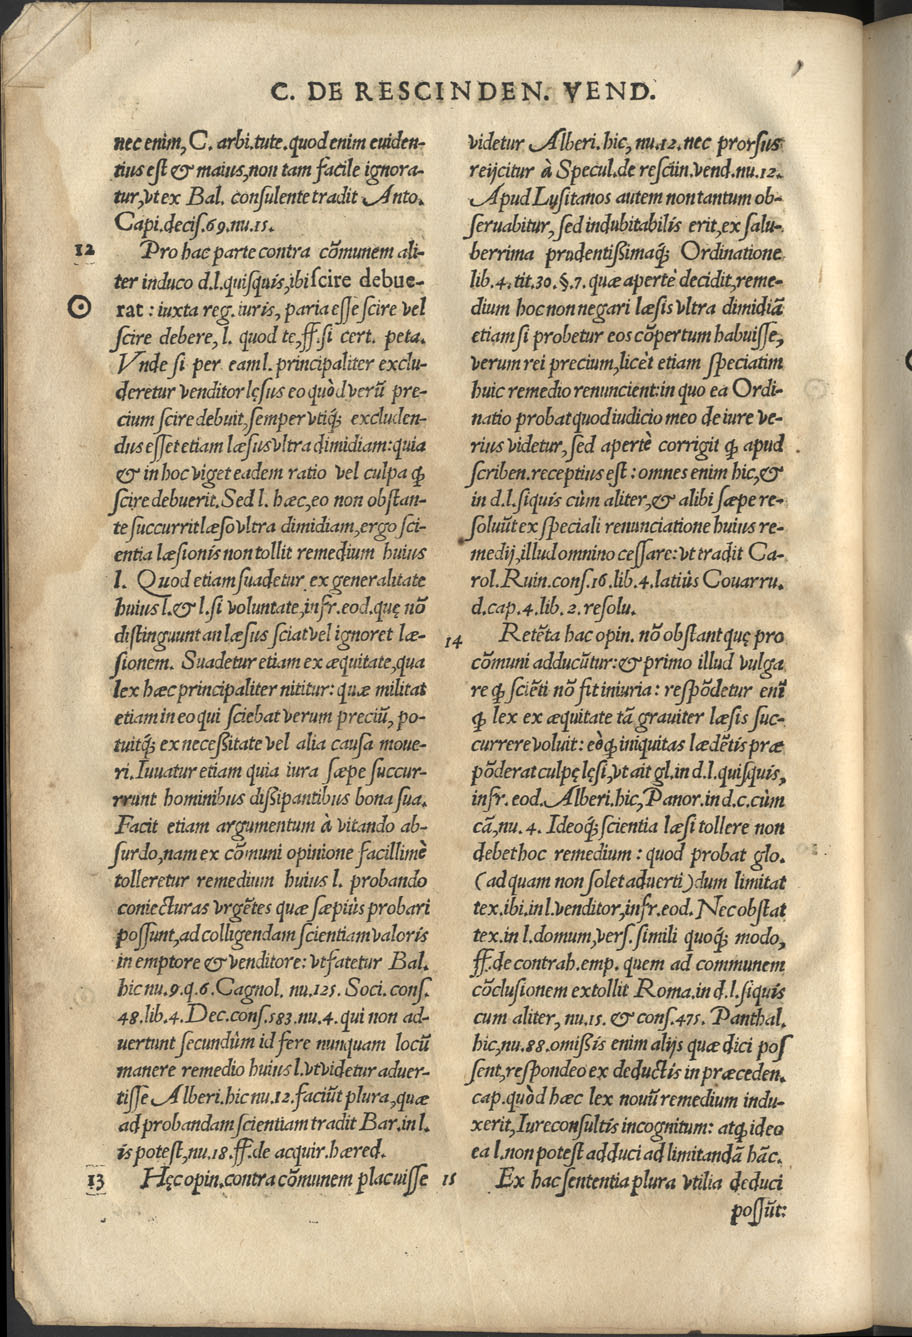 C. DE RESCINDEN. VEND.
nec enim, C. arbi.tute.quod enim euiden-
tius est & maius, non tam facile ignora-
tur, vt ex Bal. consulente tradit Anto.
Capi.decis.69.nu.15.
12 Pro hac parte contra cõmunem ali-
ter induco d.l.quisquis, ibi scire debue-
rat : iuxta reg. iuris, paria esse scire vel
scire debere, l. quod te, ff.si cert. peta.
Vnde si per eam l. principaliter exclu-
deretur venditor lęsus eo quòd verũ pre-
cium scire debuit, semper vtiq; excluden-
dus esset etiam læsus vltra dimidiam: quia
& in hoc viget eadem ratio vel culpa ꝙ
scire debuerit. Sed l. hæc, eo non obstan-
te succurrit læso vltra dimidiam, ergo sci-
entia læsionis non tollit remedium huius
l. Quod etiam suadetur ex generalitate
huius l. & l. si voluntate, infr. eod. quę nõ
distinguunt an læsus sciat vel ignoret læ-
sionem. Suadetur etiam ex æquitate, qua
lex hæc principaliter nititur: quæ militat
etiam in eo qui sciebat verum preciũ, po-
tuitq; ex necessitate vel alia causa moue-
ri. Iuuatur etiam quia iura sæpe succur-
rrunt hominibus dissipantibus bona sua.
Facit etiam argumentum à vitando ab-
surdo, nam ex cõmuni opinione facillimè
tolleretur remedium huius l. probando
coniecturas vrgẽtes quæ sæpiùs probari
possunt, ad colligendam scientiam valoris
in emptore & venditore: vt fatetur Bal.
hic nu.9.q.6. Cagnol. nu.125. Soci. cons.
48.lib.4. Dec.cons.583.nu.4. qui non ad-
uertunt secundùm id fere nunquam locũ
manere remedio huius l. vt videtur aduer-
tisse Alberi.hic nu.12. faciũt plura, quæ
ad probandam scientiam tradit Bar.in l.
is potest, nu.18.ff.de acquir.hæred.
13 Hęc opin.contra cõmunem placuisse
videtur Alberi. hic, nu.12. nec prorsus
reijcitur à Specul.de resciin.vend.nu.12.
Apud Lusitanos autem non tantum ob-
seruabitur, sed indubitabilis erit, ex salu-
berrima prudentissimaq; Ordinatione
lib.4. tit.30.§.7. quæ apertè decidit, reme-
dium hoc non negari læsis vltra dimidiã
etiam si probetur eos cõpertum habuisse,
verum rei precium, licèt etiam speciatim
huic remedio renuncient: in quo ea Ordi-
natio probat quod iudicio meo de iure ve-
rius videtur, sed apertè corrigit ꝙ apud
scriben.receptius est : omnes enim hic, &
in d.l.siquis cùm aliter, & alibi sæpe re-
soluũt ex speciali renunciatione huius re-
medij, illud omnino cessare: vt tradit Ca-
rol. Ruin.cons.16.lib.4. latiùs Couarru.
d.cap.4.lib.2.resolu.
14 Retẽta hac opin. nõ obstant quę pro
cõmuni adducũtur: & primo illud vulga
re ꝙ sciẽti nõ fit iniuria : respõdetur enĩ
ꝙ lex ex æquitate tã grauiter læsis suc-
currere voluit : eò ꝙ iniquitas lædẽtis præ
põderat culpę lęsi, vt ait gl.in d.l.quisquis,
infr. eod. Alberi. hic, Panor. in d.c.cùm
cã, nu. 4. Ideoq; scientia læsi tollere non
debet hoc remedium : quod probat glo.
(ad quam non solet aduerti) dum limitat
tex.ibi.in l.venditor, infr.eod. Nec obstat
tex.in l.domum, vers.simili quoq; modo,
ff.de contrah.emp. quem ad communem
cõclusionem extollit Roma.in d.l.siquis
cum aliter, nu.15. & cons.475. Panthal.
hic, nu.88. omissis enim alijs quæ dici pos
sent, respondeo ex deductis in præceden.
cap. quòd hæc lex nouũ remedium indu-
xerit, Iureconsultis incognitum: atq; ideo
ea l. non potest adduci ad limitandã hãc.
15 Ex hac sententia plura vtilia deduci
possũt: